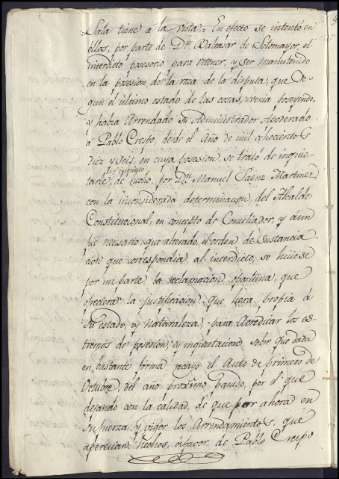 Sala tiene a la vista. En efecto se intentó en
ellos, por parte de Dn. Baltasar de Sotomayor, el
interdicto posesorio para retener, y ser manutenido
en la posesion de la casa de la disputa; que se-
gun el ultimo estado de las cosas, venia poseyendo,
y havia arrendado su Administrador Apoderado
á Pablo Crespo desde el Año de mil ochocientos
diez y seis, en cuya posesion, se trató de inquie-
tarle, de nuevo, por Dn. Manuel Saenz Martinez
con la inconsiderada determinacion del Alcalde
Constitucional, en concepto de Conciliador, y aun
fue necesario que alterado el orden de sustancia
cion que correspondia al interdicto, se hiciese
por mi parte la reclamacion oportuna, que
ofreciera la justificacion que fuera propia á
su estado, y naturaleza, para acreditar los es-
tremos de posesion, y inquietacion, sobre que dada
en bastante forma recayó el Auto de primero de
Octubre del año proximo pasado, por el que
dejando con la calidad, de que por ahora en
su fuerza y vigor los Arrendamientos, que
aparecian hechos, á favor de Pablo Crespo